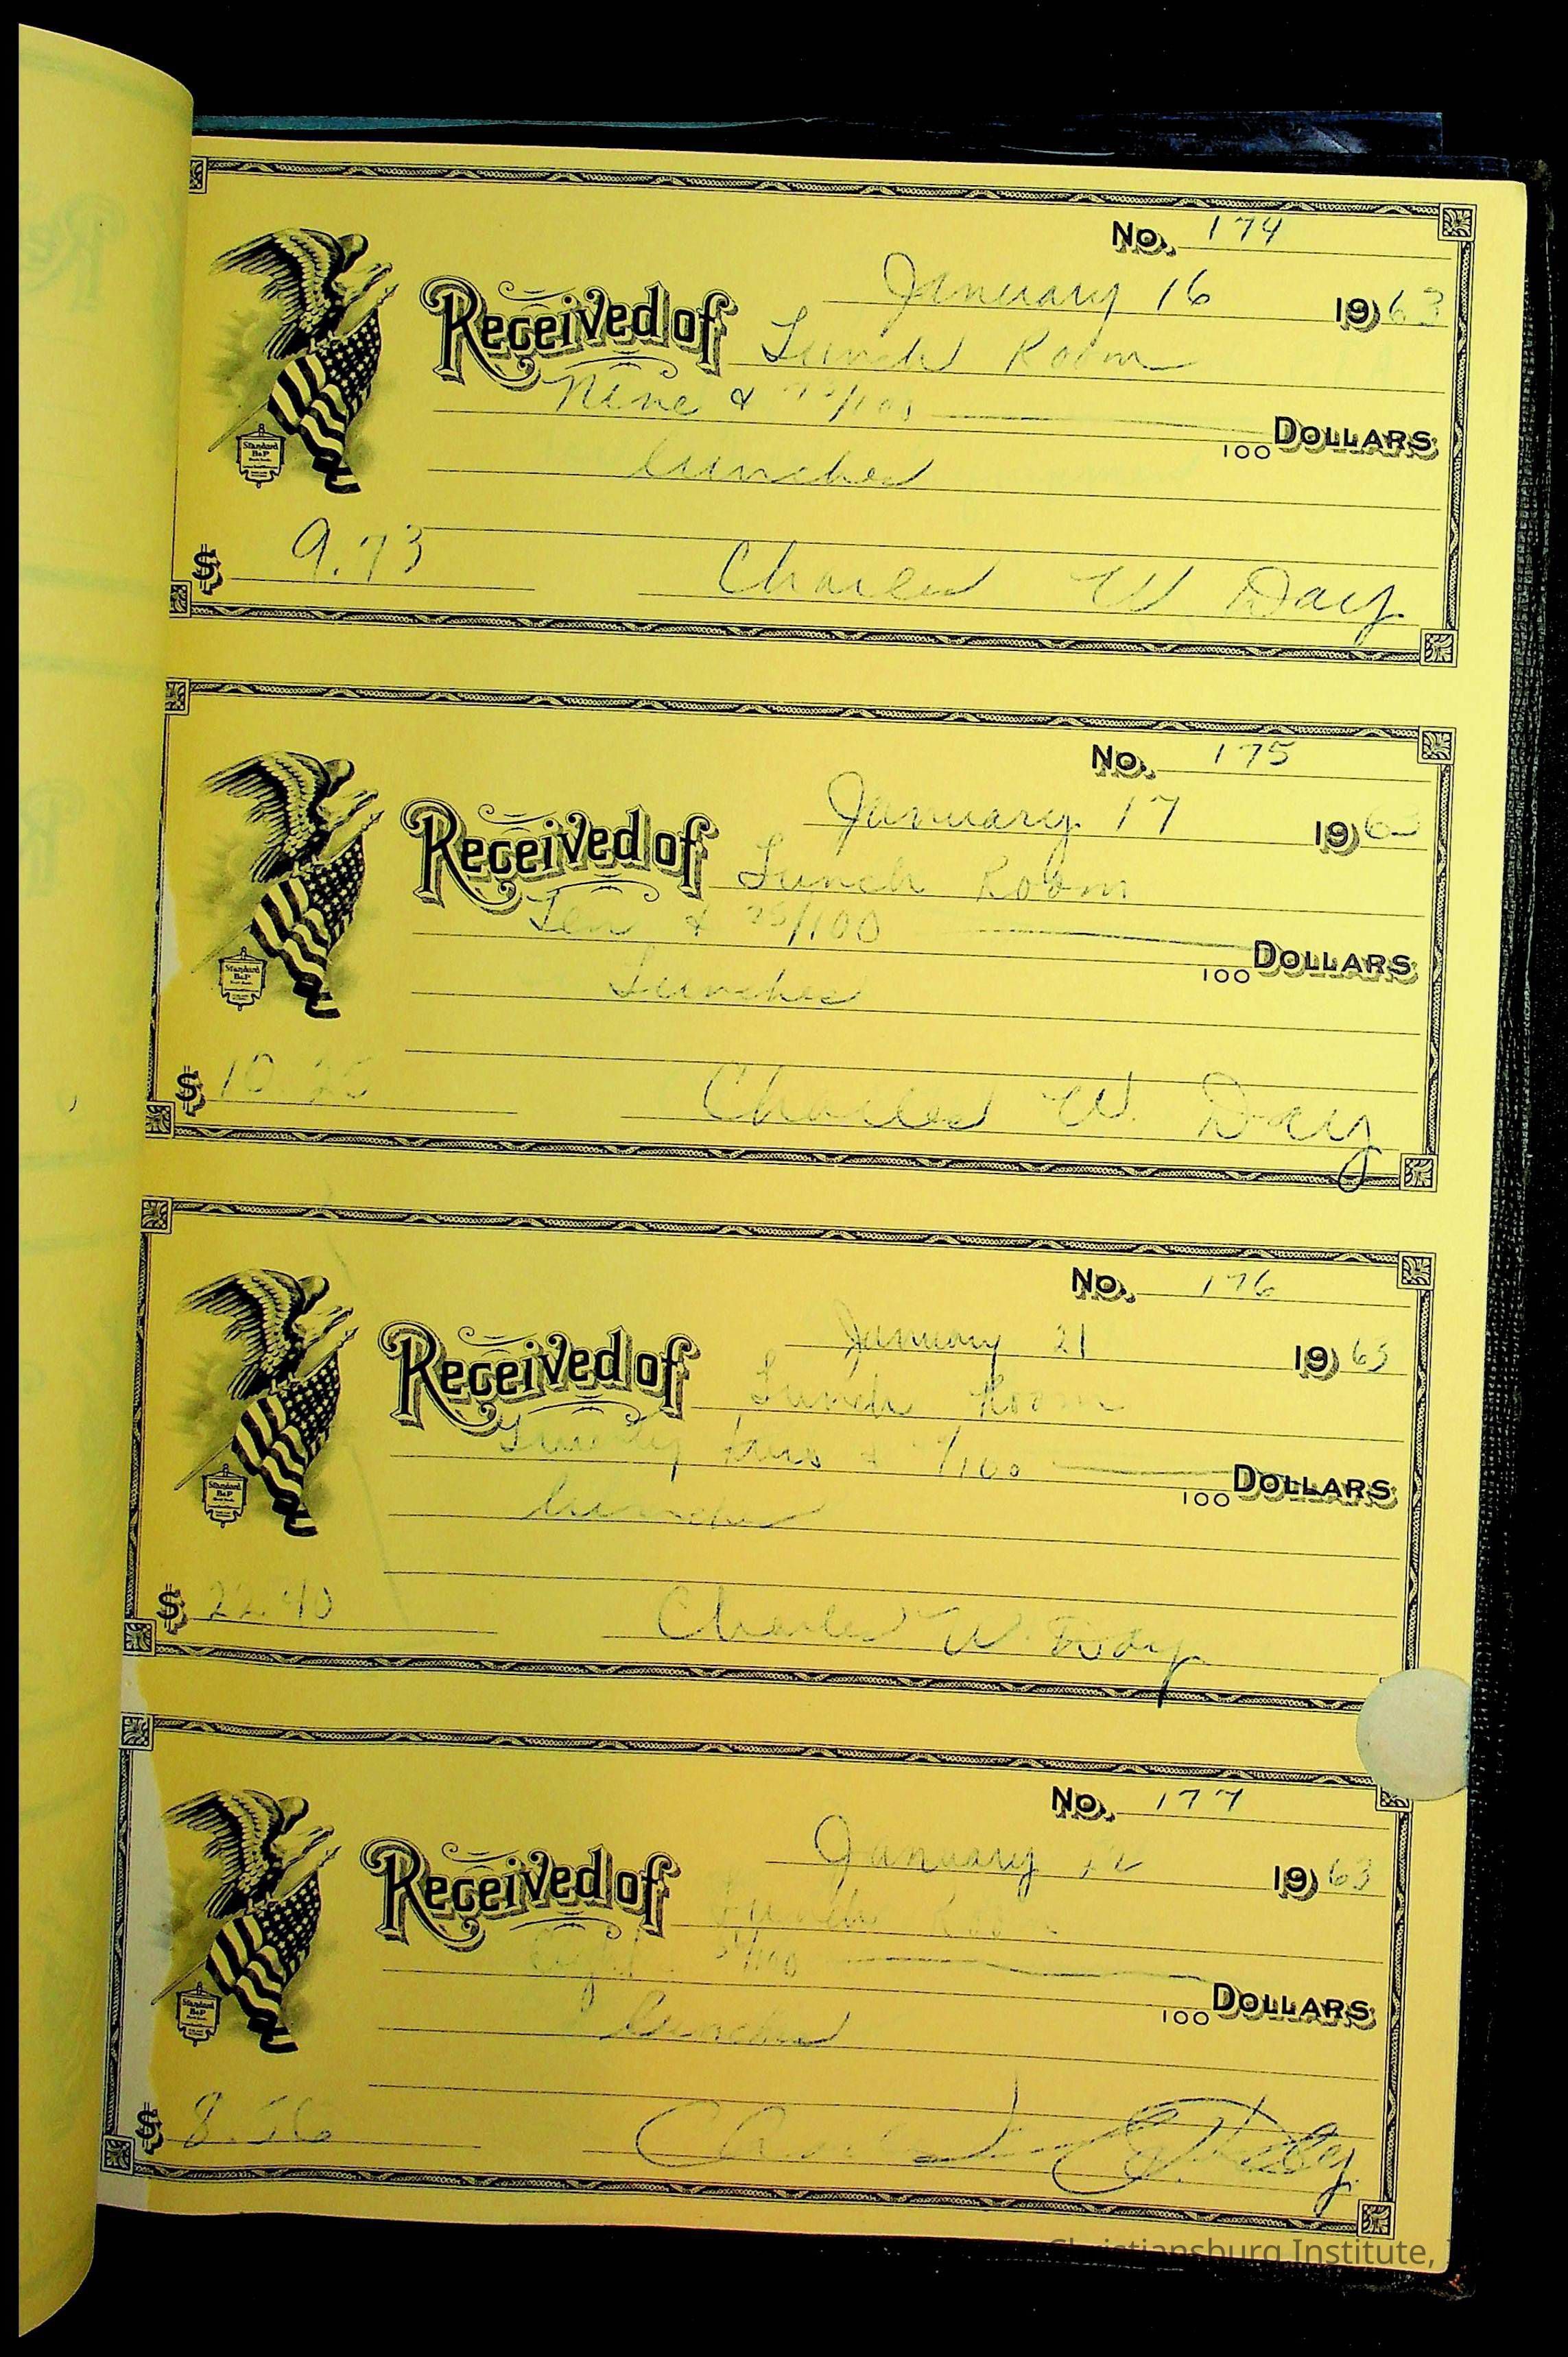 No. 174
January 16 1963
Received of Lunch Room
Nine & 73/100
100 DOLLARS
Lunches
Standard
B&P
$ 9.73
Charles W Day
No. 175
January 17 1963
Received of Lunch Room
Ten & 25/100
100 DOLLARS
Lunches
Standard
B&P
$ 10.25
Charles W. Day
No. 176
January 21 1963
Received of Lunch Room
Twenty two & /100
100 DOLLARS
Lunches
Standard
B&P
$ 22.40
Charles W. Day
No. 177
January 22 1963
Received of Lunch Room
Eight /100
100 DOLLARS
Lunches
Standard
B&P
$ 8.56
Day
Christiansburg Institute,